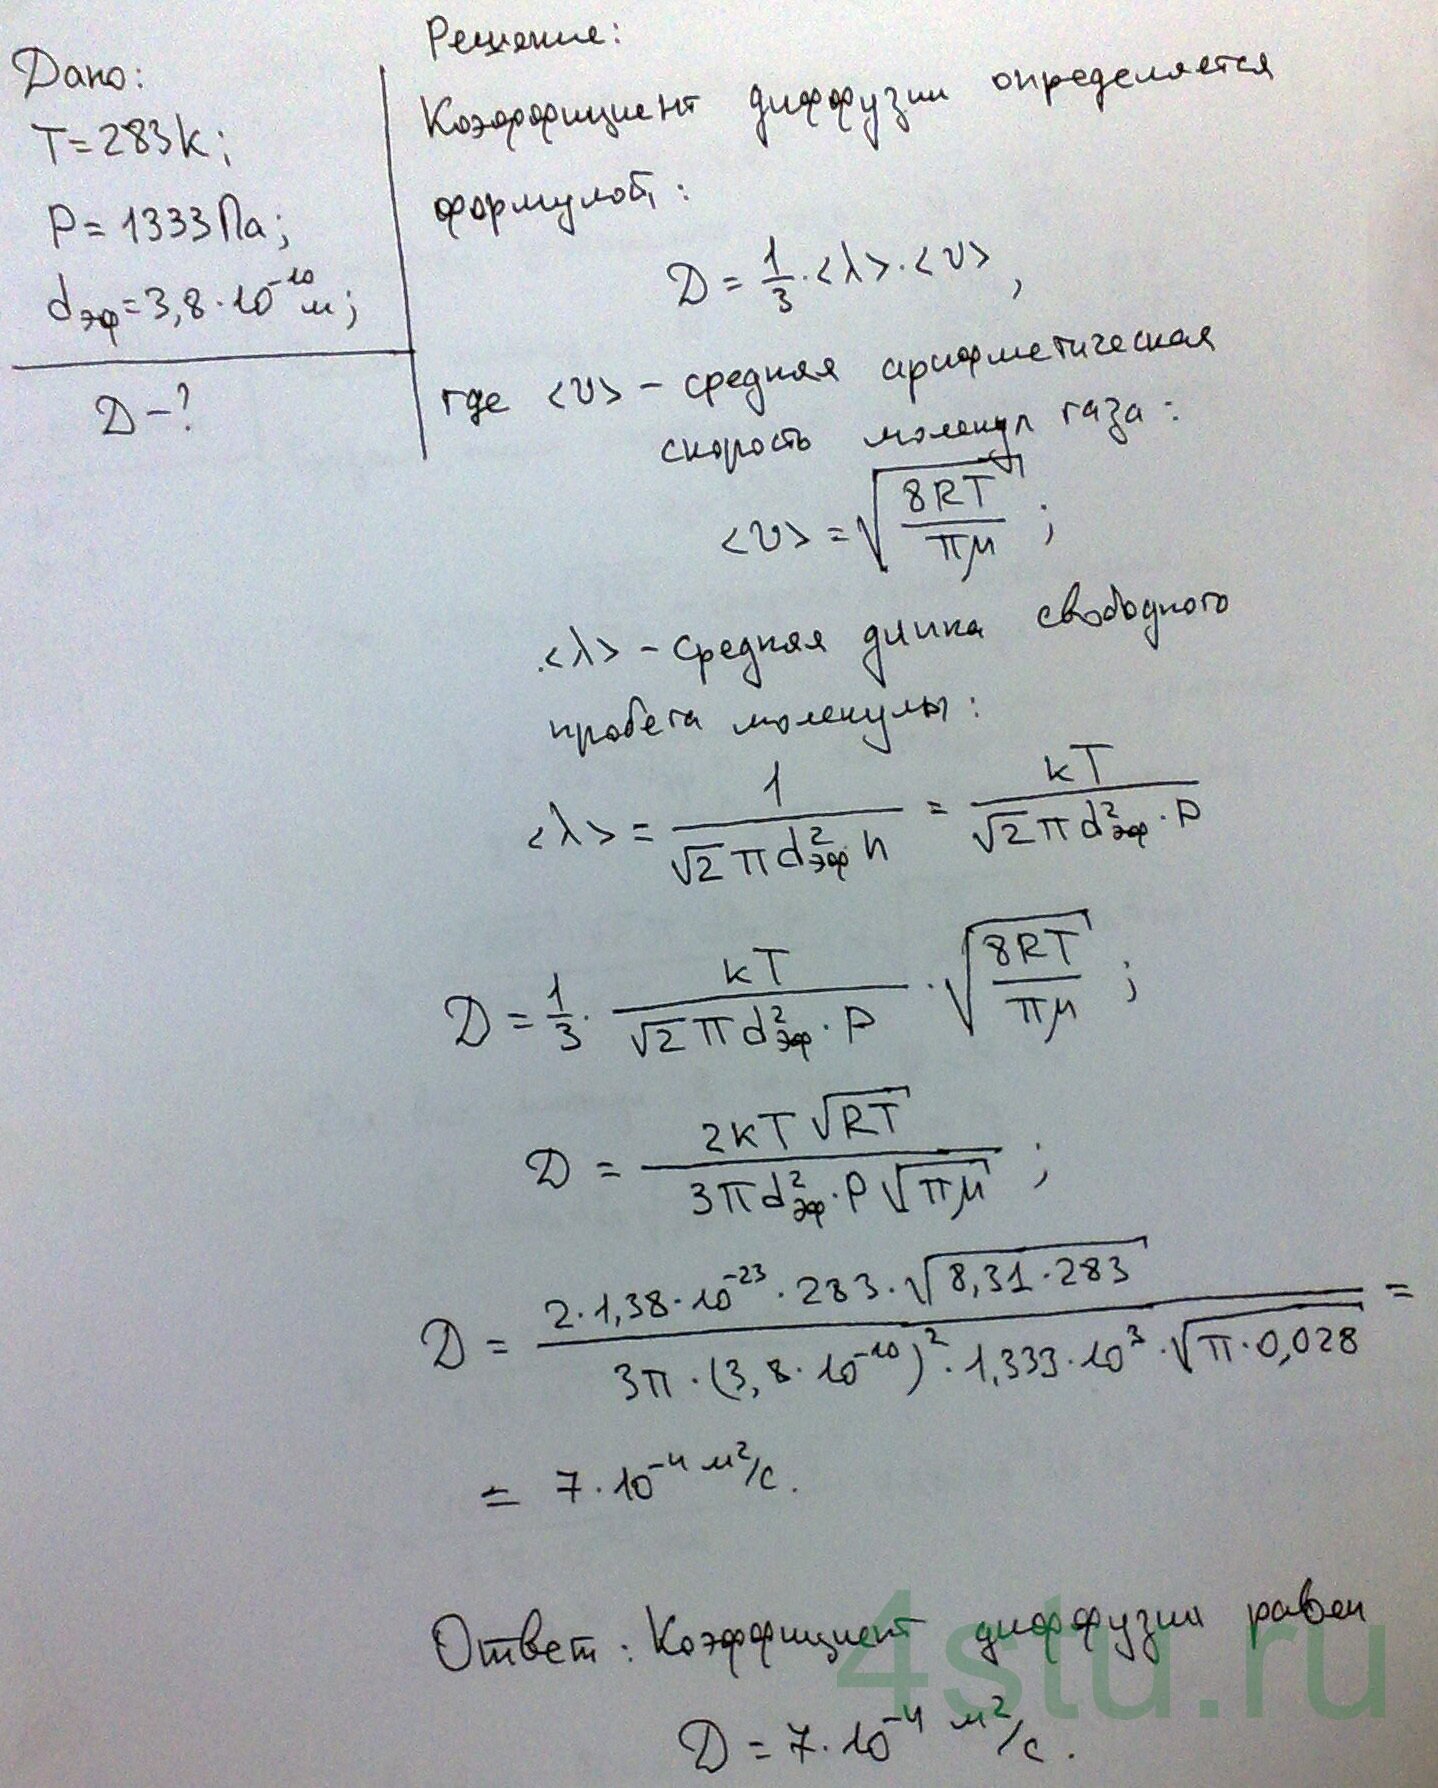 Дано:
T=283К;
P=1333Па;
dэф=3,8·10⁻¹⁰м;
D-?
Решение:
Коэффициент диффузии определяется
формулой:
D = 1/3·<λ>·<υ>,
где <υ> - средняя арифметическая
скорость молекул газа:
<υ> = √(8RT/πμ);
<λ> - средняя длина свободного
пробега молекулы:
<λ> = 1/(√2πd²эф·n) = кT/(√2πd²эф·P)
D = 1/3·кT/(√2πd²эф·P)·√(8RT/πμ);
D = 2кT√(RT)/(3πd²эф·P√(πμ));
D = 2·1,38·10⁻²³·283·√(8,31·283)/(3π·(3,8·10⁻¹⁰)²·1,333·10³·√(π·0,028)) =
= 7·10⁻⁴ м²/с.
Ответ: Коэффициент диффузии равен
D = 7·10⁻⁴ м²/с.
4stu.ru